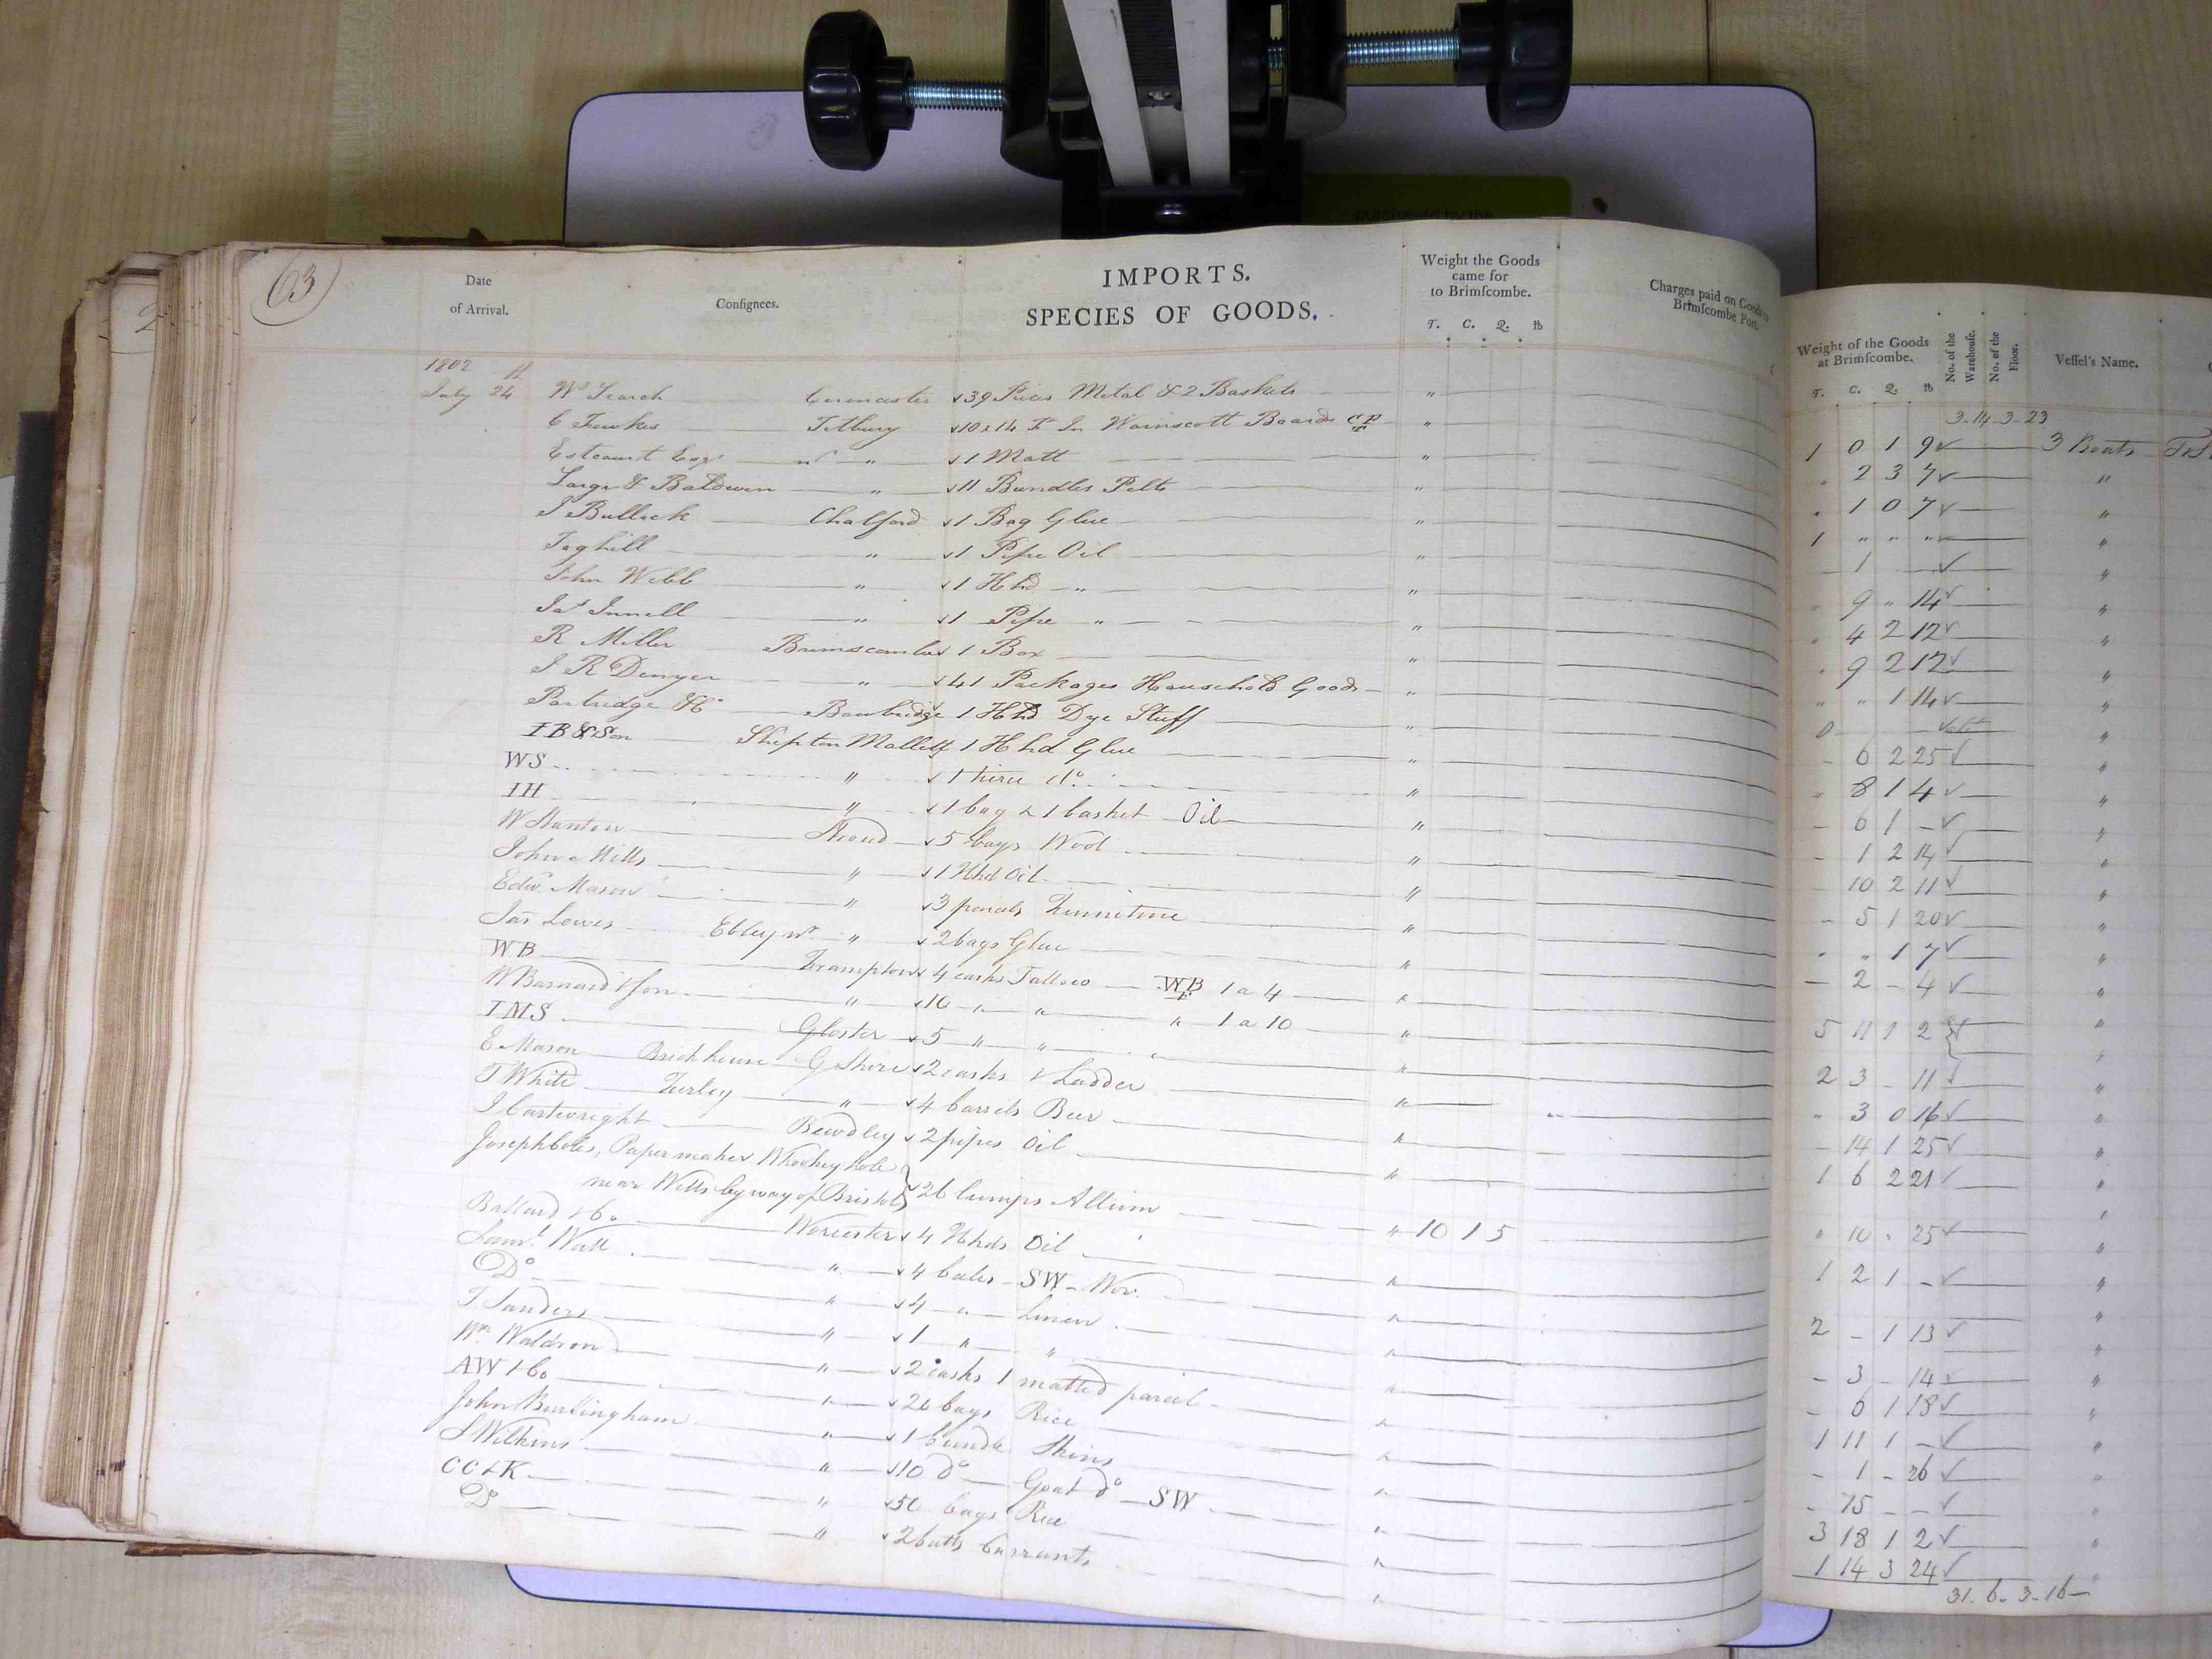 purchased by the
63
Date
of Arrival.
Consignees.
IMPORTS.
SPECIES OF GOODS.
Weight the Goods
came for
to Brimscombe.
T. C. Q. lb
Charges paid on Goods to
Brimscombe Port.
Weight of the Goods
at Brimscombe.
T. C. Q. lb
No. of the
Warehouse.
No. of the
Floor.
Vessel's Name.
1802
3-14-3-23
July 24 Wm Search Cirencester 39 Pieces Metal & 2 Baskets " 1 0 1 9 3 Boats
C Fewkes Tetbury 10 x 14 Ft In Wainscott Boards CF " . 2 3 7 "
Estcourt Esqr nr " 1 Matt " . 1 0 7 "
Large & Baldwin " 11 Bundles Pelts " 1 " " " "
S Bullock Chalford 1 Bag Glue " - 1 "
Toghill " 1 Pipe Oil " " 9 " 14 "
John Webb " 1 Hhd " " " 4 2 12 "
Jas Innell " 1 Pipe " " " 9 2 12 "
R Miller Brimscombe 1 Box " " " 1 14 "
J R Denyer " 41 Packages Household Goods " 0 "
Partridge & Co Bowbridge 1 Hhd Dye Stuff " - 6 2 25 "
IB & Son Shepton Mallett 1 Hhd Glue " " 8 1 4 "
WS " 1 tierce do " - 6 1 - "
IH " 1 bag & 1 basket Oil " - 1 2 14 "
W Stanton Stroud 5 bags Wool " 10 2 11 "
John Mills " 1 Hhd Oil " - 5 1 20 "
Edwd Mason " 3 parcels Furniture " " " 1 7 "
Jas Lewis Ebley nr " 2 bags Glue " - 2 - 4 "
WB Frampton 4 casks Tallow WB F 1 a 4 " 5 11 1 2 "
W Barnard & Son " 10 " " " 1 a 10 "
IMS Gloster 5 " " " " 2 3 - 11 "
E Mason Brickhouse G Shire 2 casks & Ladder " " 3 0 16 "
T White Turley " 4 barrels Beer " - 14 1 25 "
J Cartwright Bewdley 2 pipes Oil " 1 6 2 21 "
Joseph Coles, Paper maker Whookey hole
near Wells by way of Bristol 26 lumps Allum " 10 1 5 " 10 " 25 "
Ballard & Co Worcester 4 Hhds Oil " 1 2 1 - "
Saml Wall " 4 bales SW Wor. "
Do " 4 " Linen " 2 - 1 13 "
T Sanders " 1 " " " - 3 - 14 "
Wm Waldron " 2 casks 1 matted parcel " - 6 1 18 "
AW & Co " 20 bags Rice " 1 11 1 - "
John Burlingham " 1 bundle Skins " - 1 - 26 "
S Wilkins " 10 do Goat do SW " - 15 - - "
CC & K " 50 bags Rice " 3 18 1 2 "
Do " 2 butts Currants " 1 14 3 24 "
31. 6. 3. 16